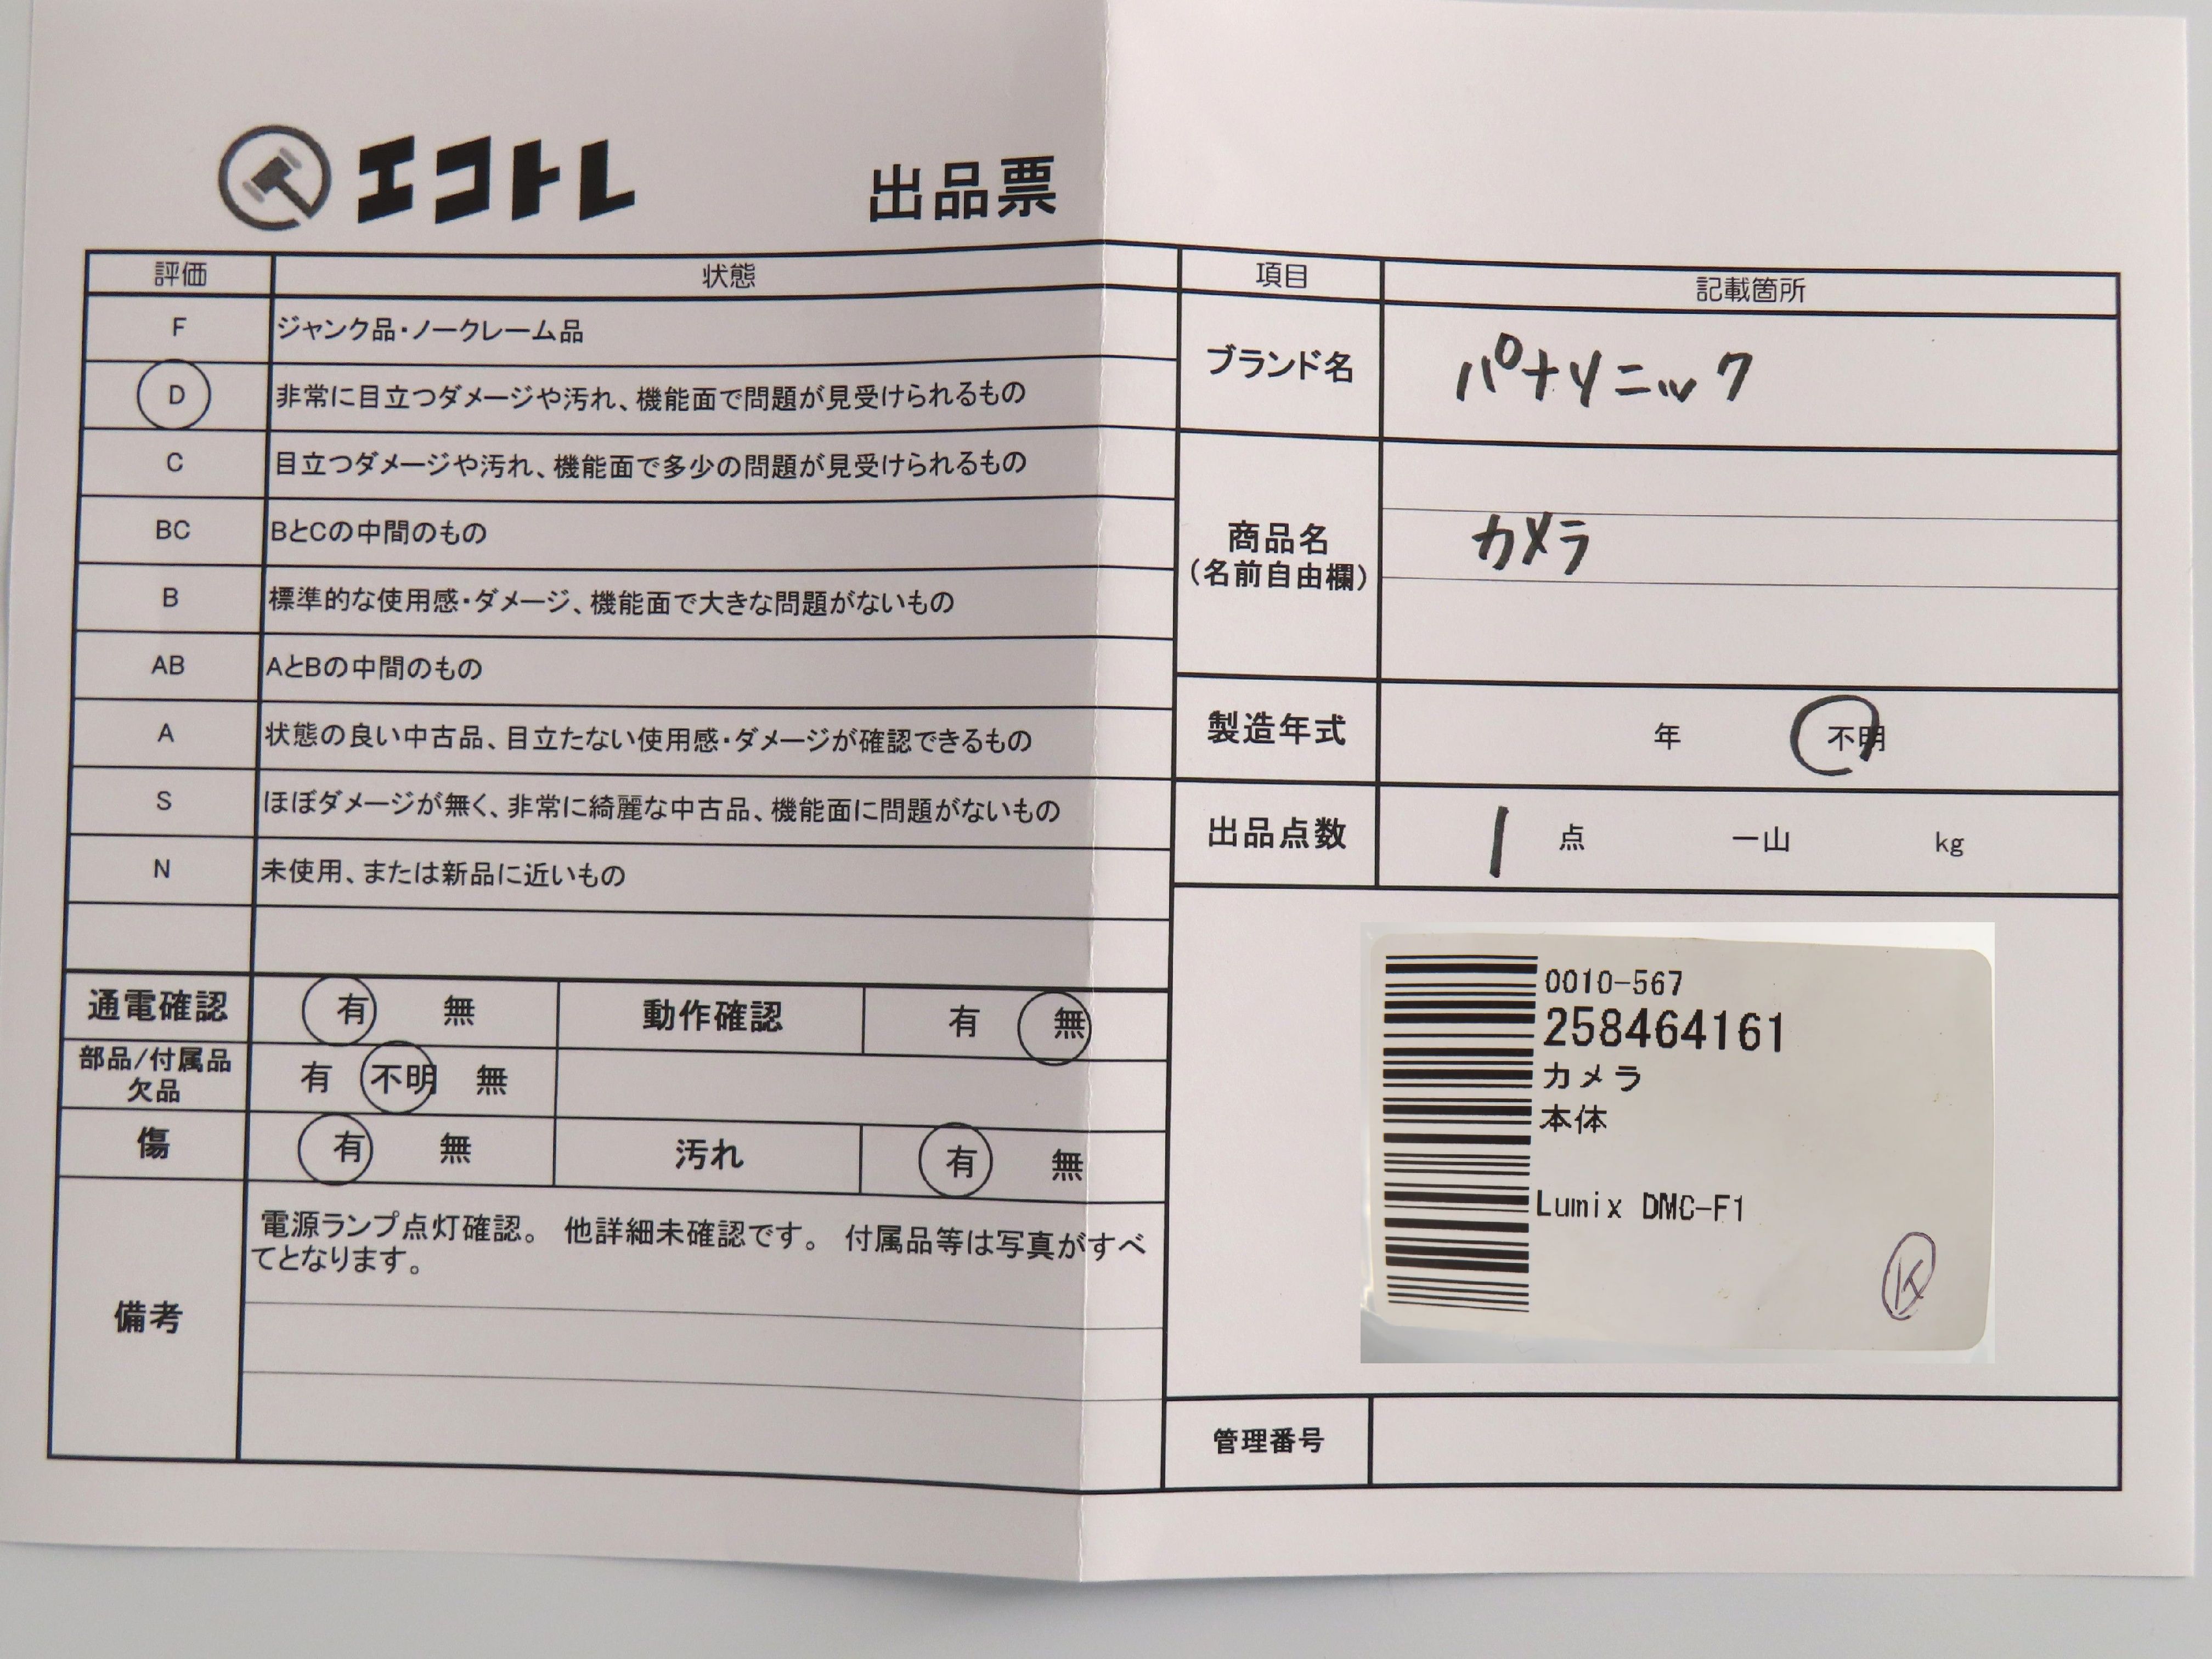 エコトレ 出品票
評価 状態
F ジャンク品・ノークレーム品
D 非常に目立つダメージや汚れ、機能面で問題が見受けられるもの
C 目立つダメージや汚れ、機能面で多少の問題が見受けられるもの
BC BとCの中間のもの
B 標準的な使用感・ダメージ、機能面で大きな問題がないもの
AB AとBの中間のもの
A 状態の良い中古品、目立たない使用感・ダメージが確認できるもの
S ほぼダメージが無く、非常に綺麗な中古品、機能面に問題がないもの
N 未使用、または新品に近いもの
通電確認 有 無 動作確認 有 無
部品/付属品
欠品 有 不明 無
傷 有 無 汚れ 有 無
備考
電源ランプ点灯確認。 他詳細未確認です。 付属品等は写真がすべ
てとなります。
項目 記載箇所
ブランド名 パナソニック
商品名
(名前自由欄)
カメラ
製造年式 年 不明
出品点数 1 点 一山 kg
0010-567
258464161
カメラ
本体
Lumix DMC-F1
K
管理番号